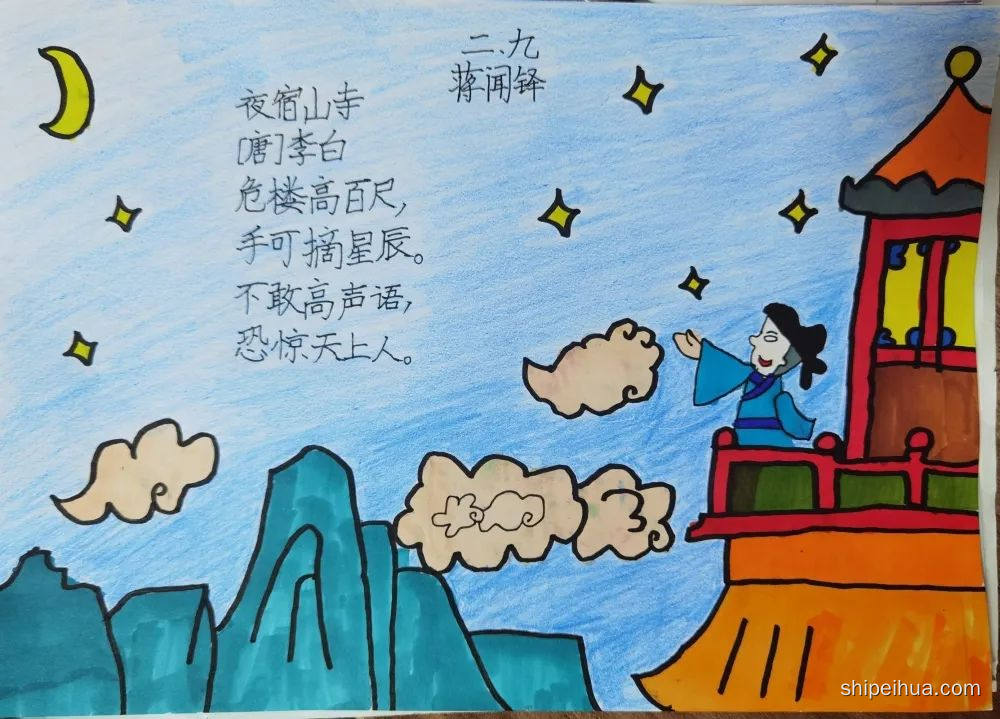 二、九
蒋闻铎
夜宿山寺
[唐]李白
危楼高百尺，
手可摘星辰。
不敢高声语，
恐惊天上人。
shipeihua.com